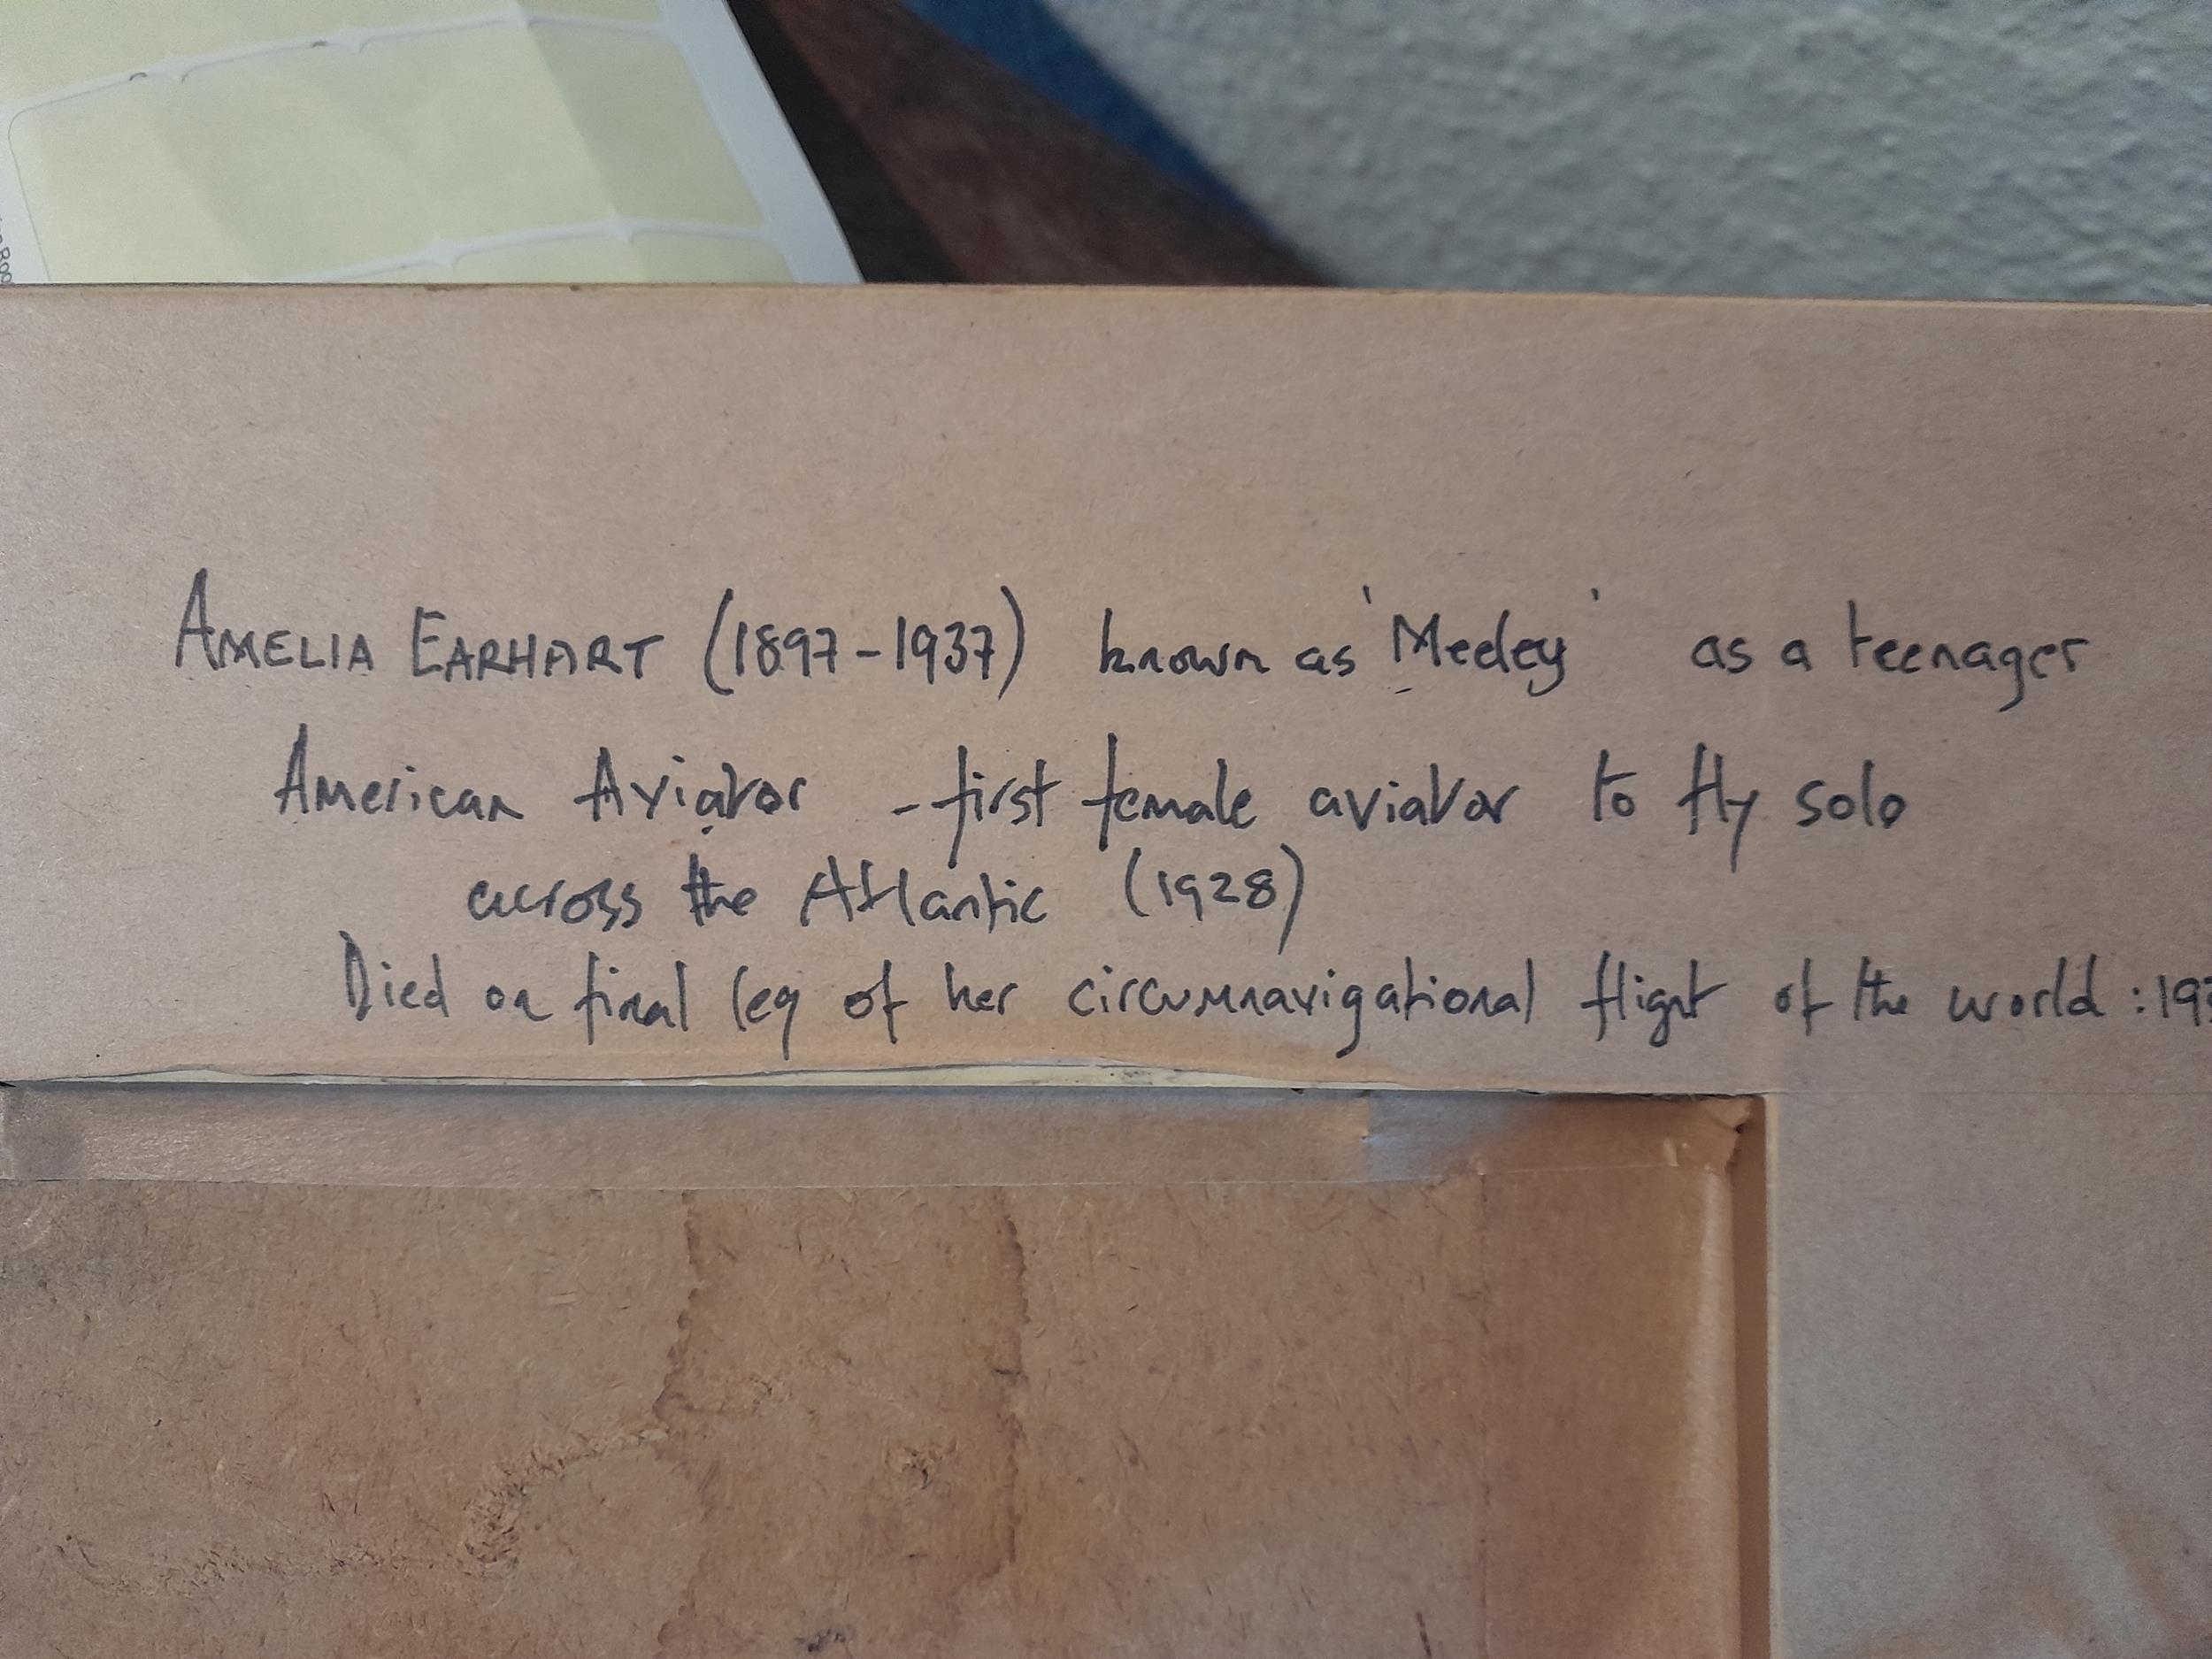 AMELIA EARHART (1897-1937) known as 'Meeley' as a teenager
American Aviator - first female aviator to fly solo
across the Atlantic (1928)
Died on final leg of her circumnavigational flight of the world : 193